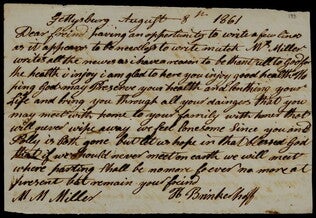 Gettysburg August 8th 1861
Dear freind having an opportunity to write a few lines
as it appears to be needful to write mutch Mr. Miller
writs all the news as i have a reason to be thankfull to God for
the health i injoy i am glad to here you injoy good health Ho
ping God may Preserve your health and lenthing your
Life and bring you through all your dainges that you
may meet with home to your family with honor that
will never wipe away we feel lonesome Since you and
Polly is Both gone but let us hope in that blessed God
that if we Should never meet on earth we will meet
where parting Shall be nomore forever no more at
present but remain your freind
M M Miller H Brinkerhoff